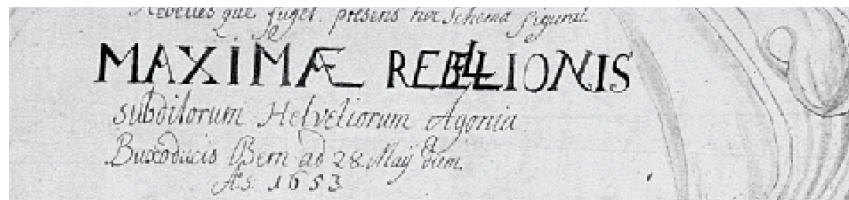 Rebelles que fuget. presens hoc Schema figurat.
MAXIMÆ REBELLIONIS
subditorum Helvetiorum Agonia
Buxoducis Bern ad 28 Maÿ diem.
Aº. 1653